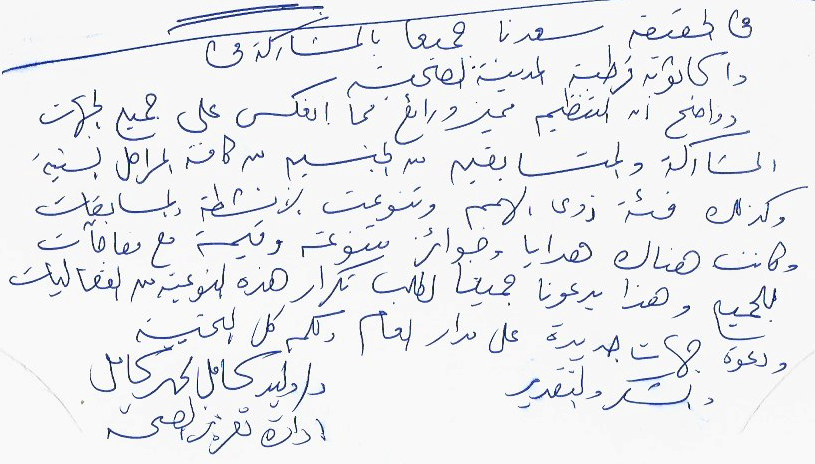 في الحقيقة سعدنا جميعا بالمشاركة في
قرطبة المدينة الصحية
وواضح أن التنظيم مميز ورائع مما انعكس على جميع الجهات
المشاركة والمتسابقين من الجنسين من كافة المراحل السنية
وكذلك فئة ذوي الهمم وتنوعت الأنشطة والمسابقات
وكانت هناك هدايا وجوائز متنوعة وقيمة مع مفاجآت
للجميع وهذا يدعونا جميعا لطلب تكرار هذه النوعية من الفعاليات
ودعوة جهات جديدة على مدار العام ولكم كل التحية
والشكر والتقدير
د/وليد كامل محمد كامل
ادارة تعزيز الصحة